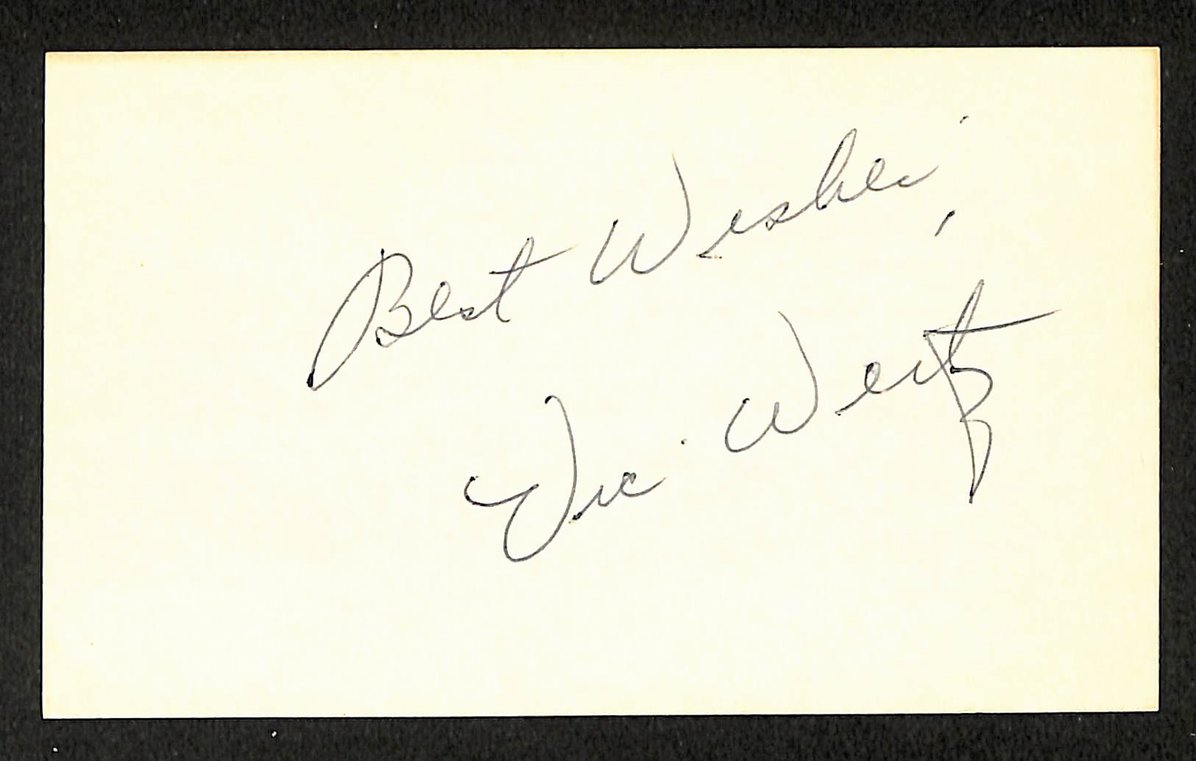 Best Wishes,
Vic Wertz